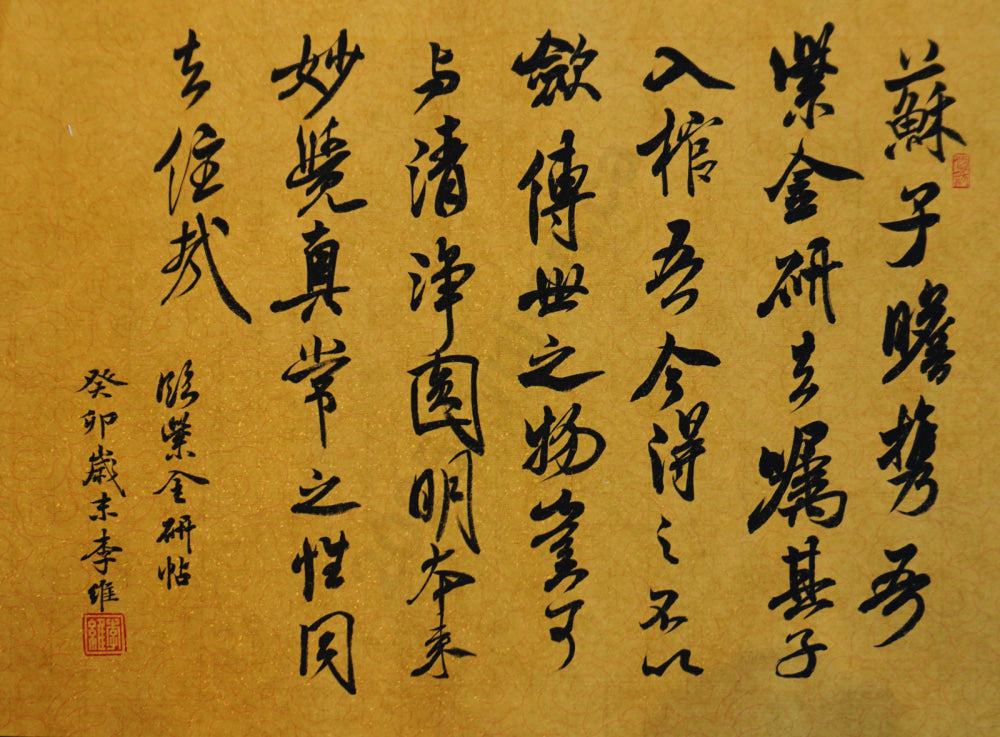 蘇子瞻携吾
紫金研去嘱其子
入棺吾今得之不以
斂傳世之物豈可
与清淨圓明本来
妙覺真常之性同
去住哉
臨紫金研帖
癸卯歲末李維